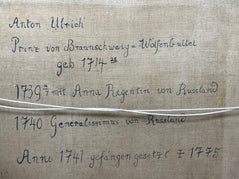 Anton Ulrich
Prinz von Braunschweig-Wolfenbüttel
geb 1714
1739 mit Anna Regentin von Russland
1740 Generalissimus von Russland
Anno 1741 gefangen gesetzt 1775